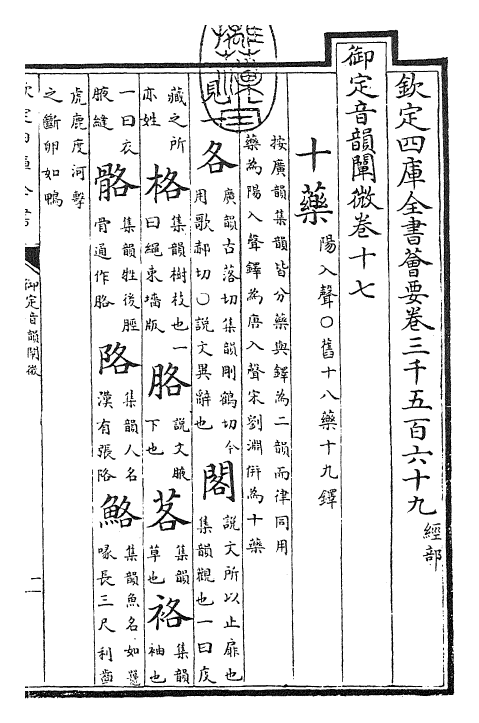 欽定四庫全書薈要卷三千五百六十九 經部
御定音韻闡微卷十七
十藥 陽入聲○舊十八藥十九鐸
按廣韻集韻皆分藥與鐸為二韻而律同用
藥為陽入聲鐸為唐入聲宋劉淵併為十藥
見一 各 廣韻古落切集韻剛鶴切今用歌郝切○說文異辭也 閣 說文所以止扉也集韻觀也一曰庋
藏之所亦姓 格 集韻樹枝也一曰繩束墻版 胳 說文腋下也 茖 集韻草也 袼 集韻袖也
一曰衣腋縫 骼 集韻牲後脛骨通作胳 䧄 集韻人名漢有張䧄 鮥 集韻魚名如鼉喙長三尺利齒
虎鹿度河擊之斷卵如鴨
欽定四庫全書
御定音韻闡微
二